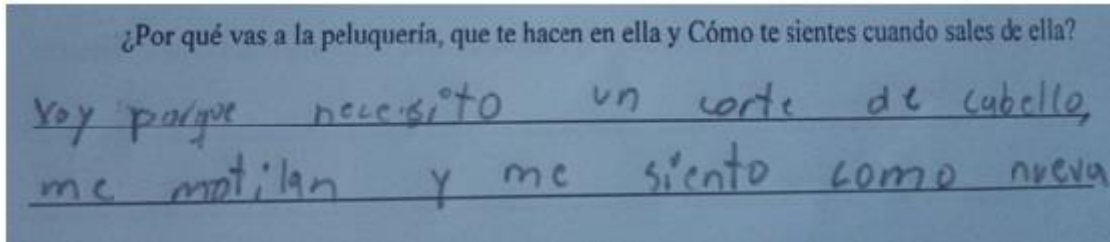 ¿Por qué vas a la peluquería, que te hacen en ella y Cómo te sientes cuando sales de ella?
Voy porque necesito un corte de cabello,
me motilan y me siento como nueva